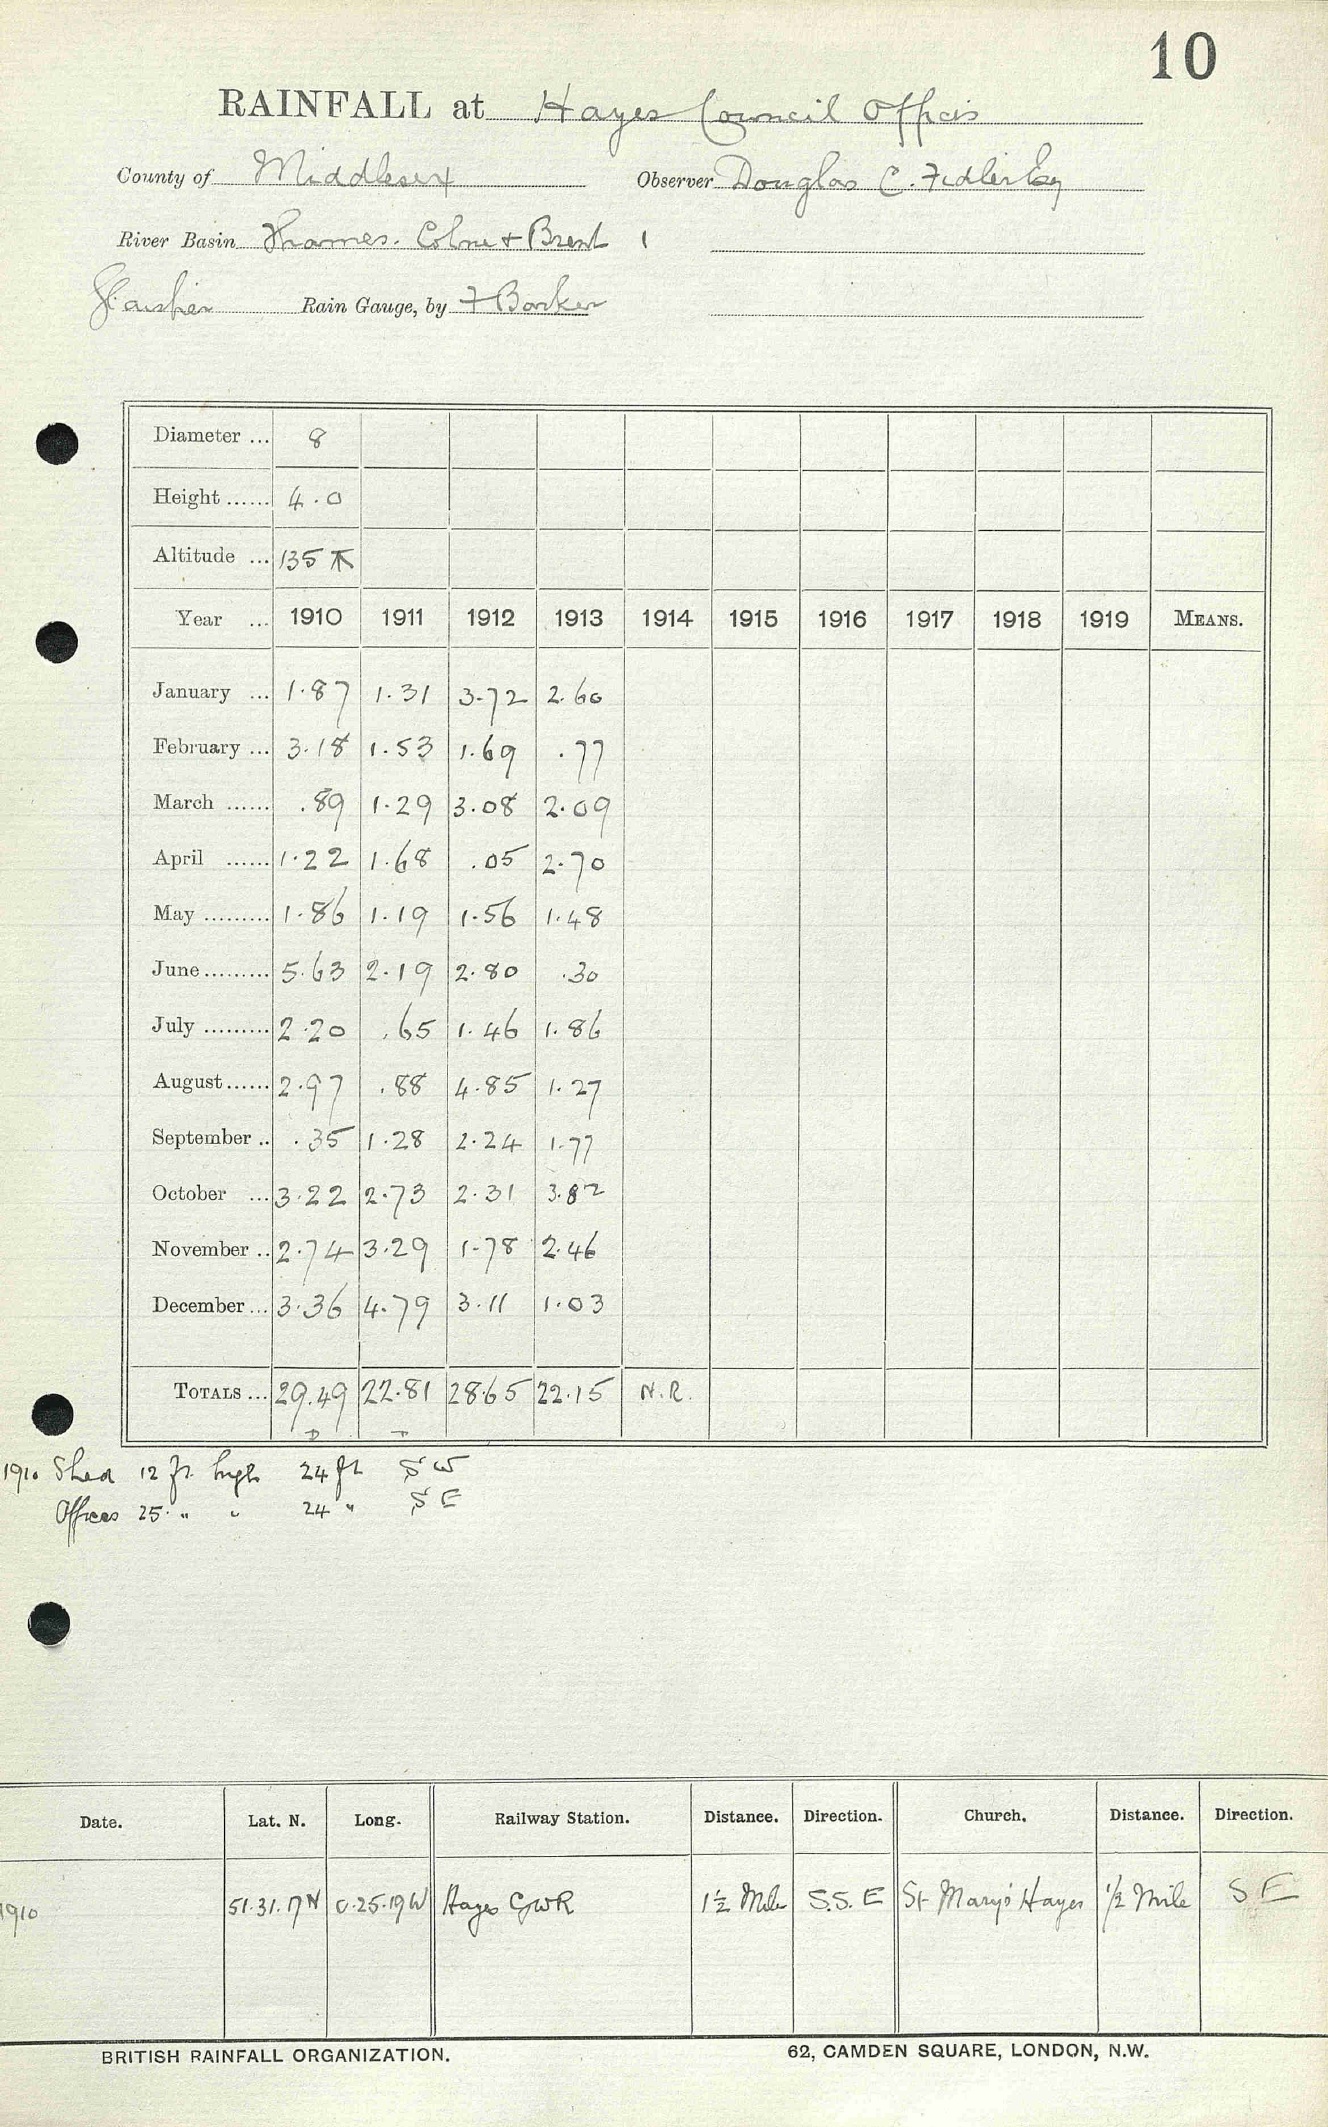 10
RAINFALL at Hayes Council Offices
County of Middlesex Observer Douglas C. Fidler Esq
River Basin Thames. Colne + Brent 1
Glaisher Rain Gauge, by F Barker
Diameter ... 8
Height ...... 4.0
Altitude ... 135
Year ... 1910 1911 1912 1913 1914 1915 1916 1917 1918 1919 MEANS.
January ... 1.87 1.31 3.72 2.60
February ... 3.18 1.53 1.69 .77
March ...... .89 1.29 3.08 2.09
April ...... 1.22 1.68 .05 2.70
May ......... 1.86 1.19 1.56 1.48
June ......... 5.63 2.19 2.80 .30
July ......... 2.20 .65 1.46 1.86
August ...... 2.97 .88 4.85 1.27
September .. .35 1.28 2.24 1.77
October ... 3.22 2.73 2.31 3.82
November .. 2.74 3.29 1.78 2.46
December ... 3.36 4.79 3.11 1.03
TOTALS ... 29.49 22.81 28.65 22.15 N.R.
1910 Shed 12 ft. high 24 ft S W
Offices 25 " " 24 " S E
Date. Lat. N. Long. Railway Station. Distance. Direction. Church. Distance. Direction.
1910 51.31.17 N 0.25.19 W Hayes GWR 1½ Mile S.S.E St Mary's Hayes ½ Mile S E
BRITISH RAINFALL ORGANIZATION. 62, CAMDEN SQUARE, LONDON, N.W.